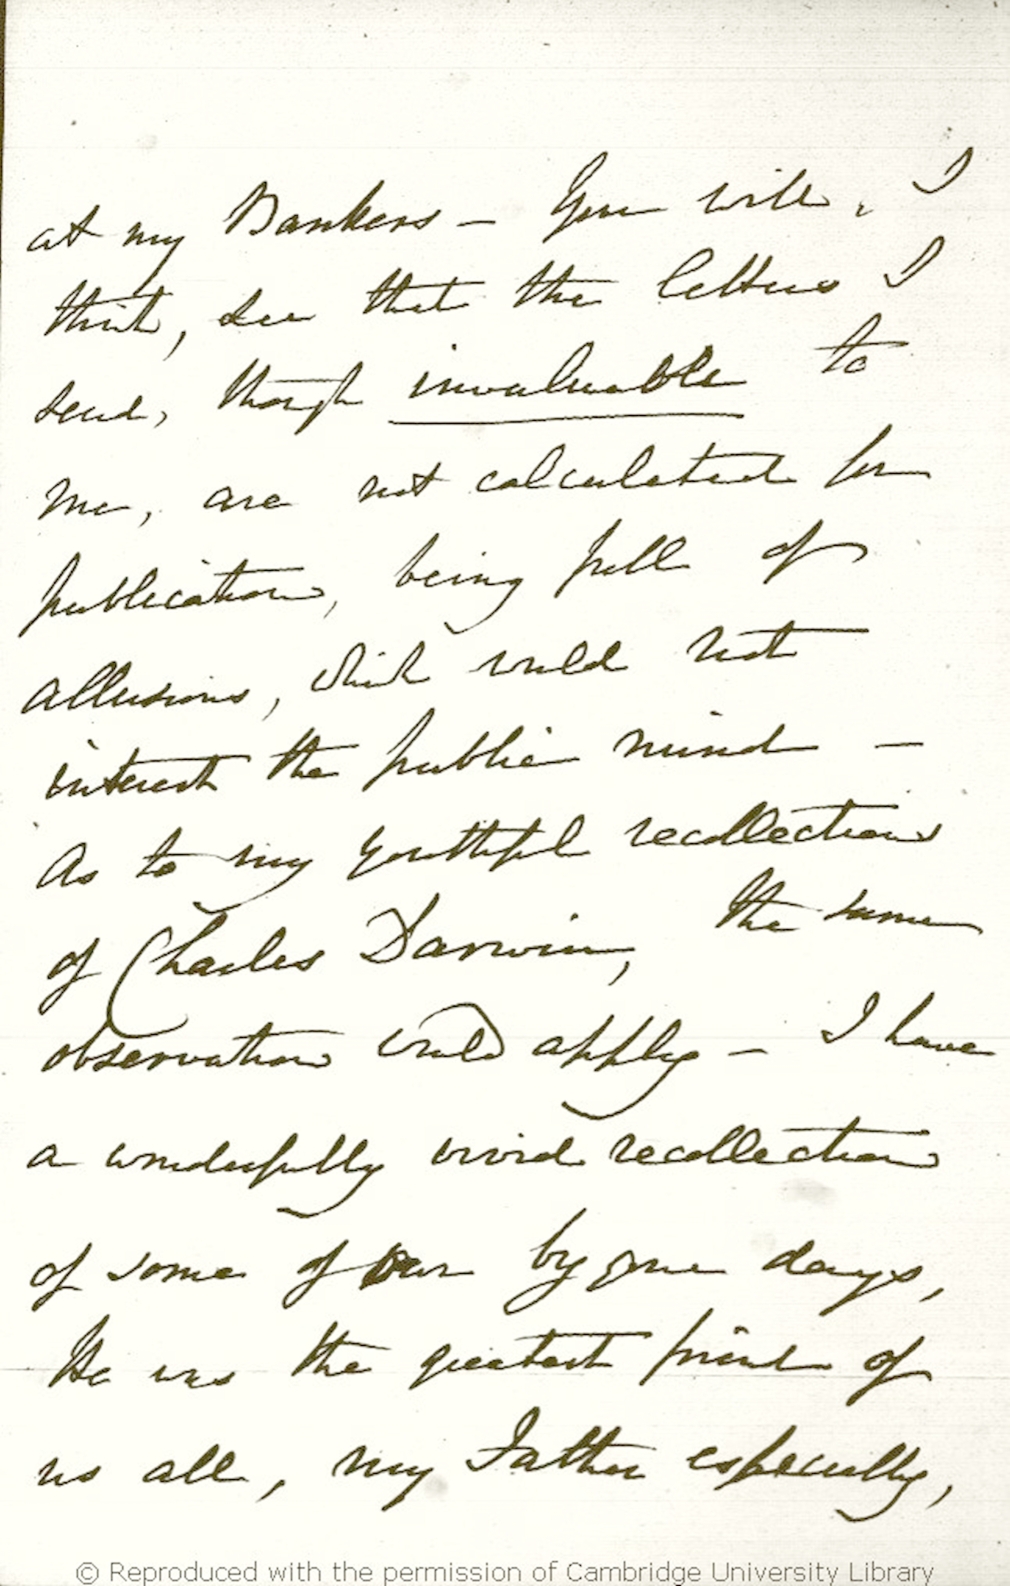 at my Bankers – You will, I
think, see that the letters I
send, though invaluable to
me, are not calculated for
publication, being full of
allusions, which would not
interest the public mind –
As to my youthful recollections
of Charles Darwin, the same
observation would apply – I have
a wonderfully vivid recollection
of some of our bygone days,
He was the greatest friend of
us all, my Father especially,
© Reproduced with the permission of Cambridge University Library